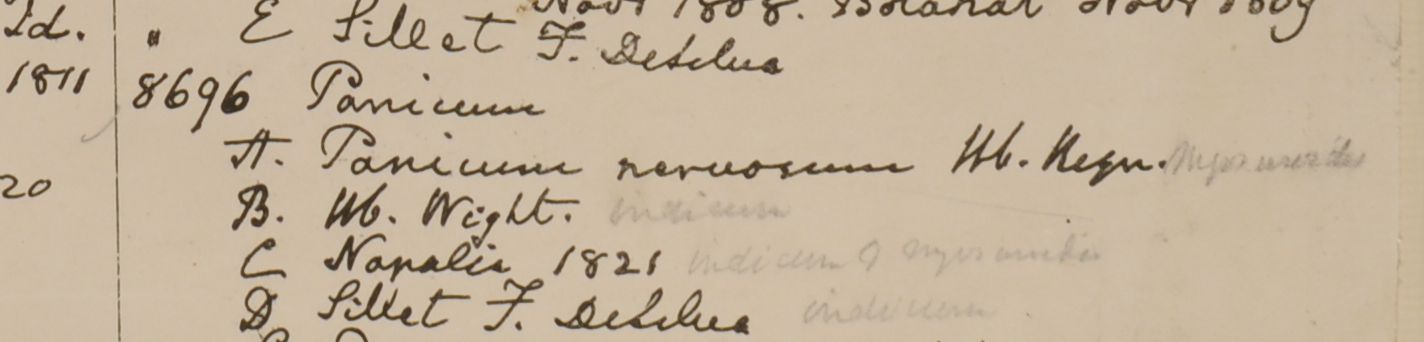 Novr 1808. Novr 1809
Id. " E Sillet F. DeSilva
1811 8696 Panicum
A. Panicum nervosum Hb. Heyn. myosuroides
20 B. Hb. Wight. indicum
C Napalia 1821 indicum &
D Sillet F. DeSilva indicum